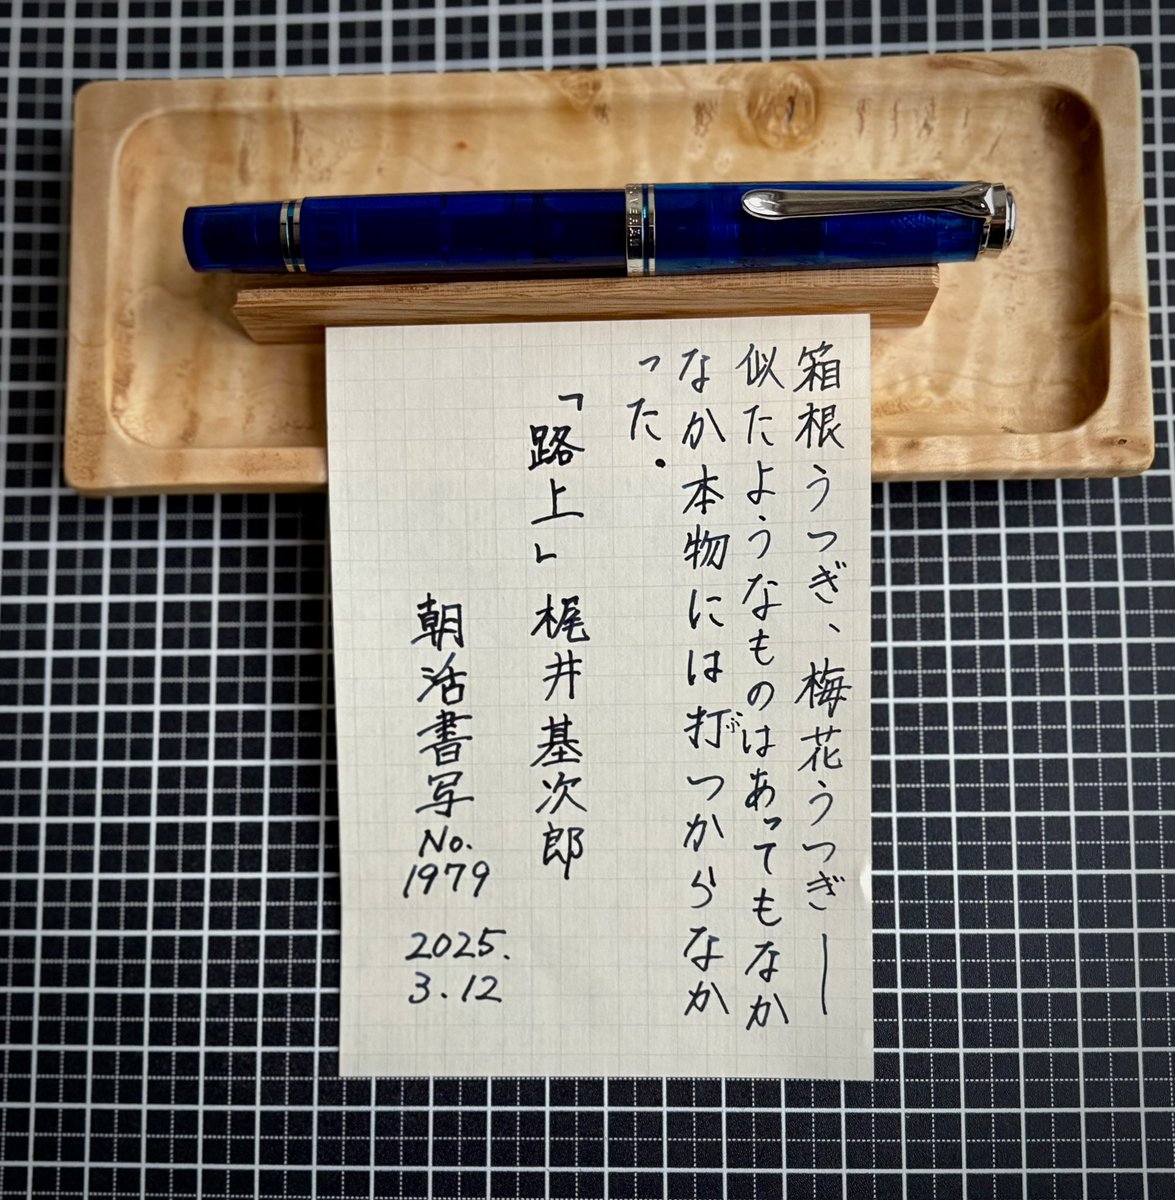 箱根うつぎ、梅花うつぎ―
似たようなものはあってもなか
なか本物には打つからなか
った.
ぶ
「路上」梶井基次郎
朝活書写
No.
1979
2025.
3.12